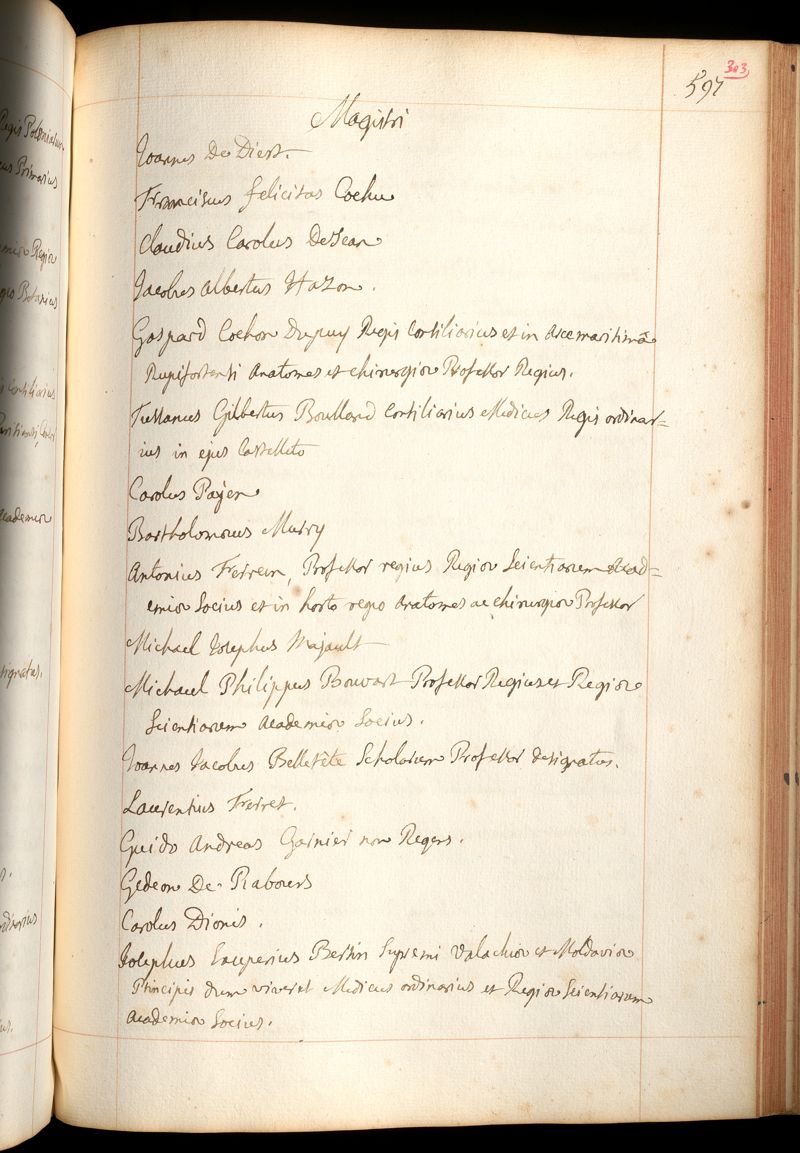 Regis Poloniarum
Primarius
Regia
Botanicus
Consiliarius
Academiæ
signatus.
ordinarius
303
597
Magistri
Joannes De Diest.
Franciscus felicitas Cochu
Claudius Carolus DeJean
Jacobus Albertus Hazon.
Gaspard Cochon Dupuy Regis Consiliarius et in Arce maritimâ
Rupifortensi Anatomes et chirurgiæ Professor Regius.
Tussanus Gilbertus Boullard Consiliarius Medicus Regis ordinar=
ius in ejus Castelleto
Carolus Payen
Bartholomæus Murry
Antonius Ferrein, Professor regius Regiæ Scientiarum Acad=
emiæ Socius et in horto regio Anatomes ac chirurgiæ Professor
Michael Josephus Majault
Michael Philippus Bouvart Professor Regius et Regiæ
Scientiarum Academiæ Socius.
Joannes Jacobus Belletête Scholarum Professor designatus.
Laurentius Ferret.
Guido Andreas Garnier non Regens.
Gedeon De Rabours
Carolus Dionis.
Josephus Exuperius Bertin Supremi Valachiæ et Moldaviæ
Principis dum viveret Medicus ordinarius et Regiæ Scientiarum
Academiæ Socius.